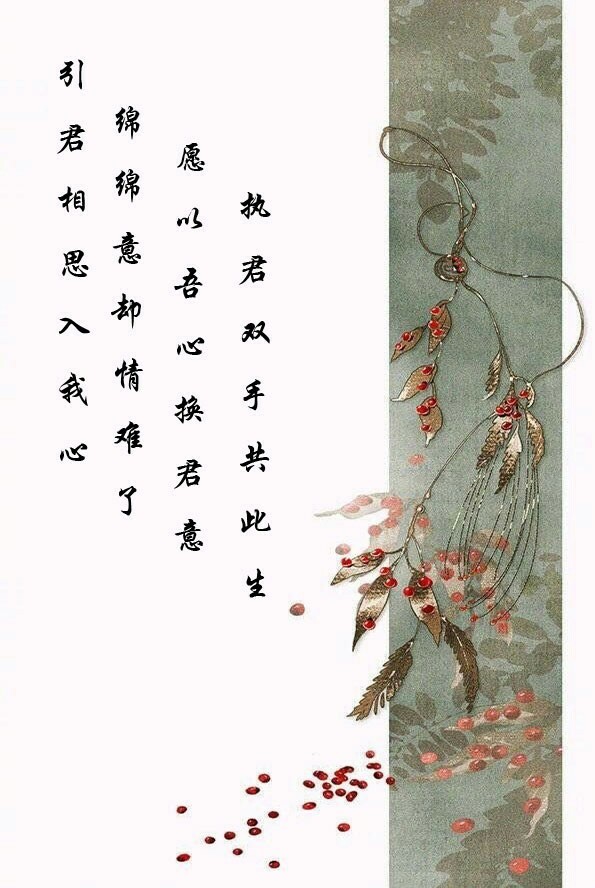 引君相思入我心
绵绵意却情难了
愿以吾心换君意
执君双手共此生